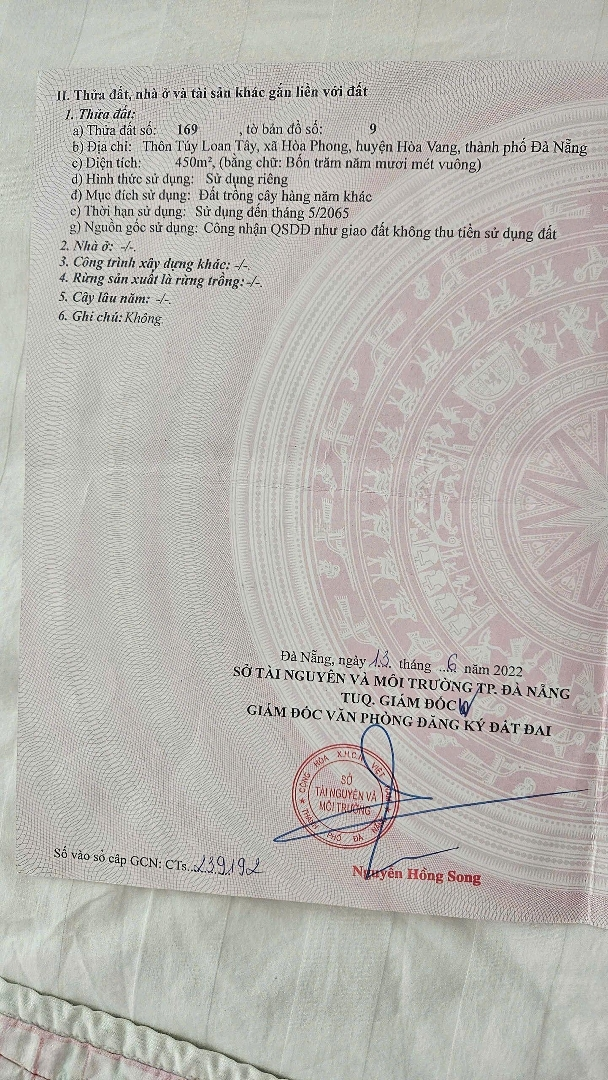 II. Thửa đất, nhà ở và tài sản khác gắn liền với đất
1. Thửa đất:
a) Thửa đất số: 169 , tờ bản đồ số: 9
b) Địa chỉ: Thôn Túy Loan Tây, xã Hòa Phong, huyện Hòa Vang, thành phố Đà Nẵng
c) Diện tích: 450m², (bằng chữ: Bốn trăm năm mươi mét vuông)
d) Hình thức sử dụng: Sử dụng riêng
đ) Mục đích sử dụng: Đất trồng cây hàng năm khác
e) Thời hạn sử dụng: Sử dụng đến tháng 5/2065
g) Nguồn gốc sử dụng: Công nhận QSDĐ như giao đất không thu tiền sử dụng đất
2. Nhà ở: -/-.
3. Công trình xây dựng khác: -/-.
4. Rừng sản xuất là rừng trồng: -/-.
5. Cây lâu năm: -/-.
6. Ghi chú: Không
Đà Nẵng, ngày 13 tháng 6 năm 2022
SỞ TÀI NGUYÊN VÀ MÔI TRƯỜNG TP. ĐÀ NẴNG
TUQ. GIÁM ĐỐC
GIÁM ĐỐC VĂN PHÒNG ĐĂNG KÝ ĐẤT ĐAI
CỘNG HÒA X.H.C.N VIỆT NAM
SỞ
TÀI NGUYÊN VÀ
MÔI TRƯỜNG
THÀNH PHỐ ĐÀ NẴNG
Số vào sổ cấp GCN: CTs 239192
Nguyễn Hồng Song